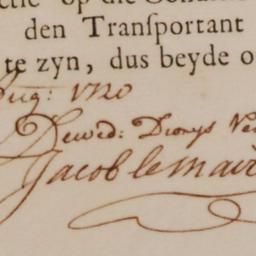 op die
den Tranſportant
te zyn, dus beyde o
Aug: 1720
Dewed: Dionys Ve
Jacob le mair